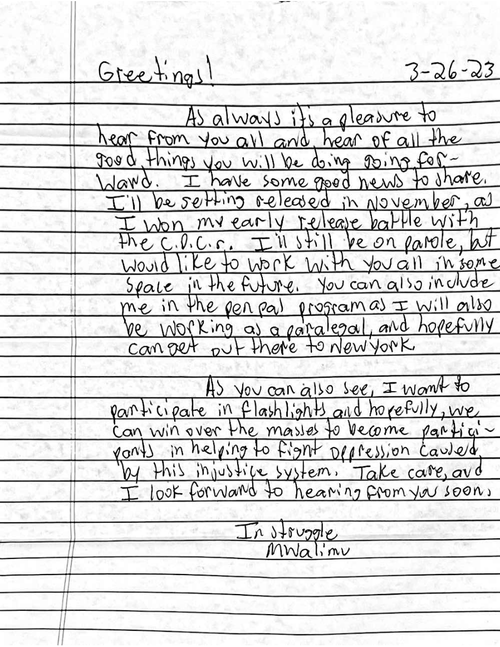 Greetings! 3-26-23
As always it's a pleasure to
hear from you all and hear of all the
good things you will be doing going for-
ward. I have some good news to share.
I'll be getting released in November, as
I won my early release battle with
the C.D.C.r. I'll still be on parole, but
would like to work with you all in some
space in the future. You can also include
me in the pen pal program as I will also
be working as a paralegal, and hopefully
can get out there to New York
As you can also see, I want to
participate in flashlights and hopefully, we
can win over the masses to become partici-
pants in helping to fight oppression caused
by this injustice system. Take care, and
I look forward to hearing from you soon.
In struggle
Mwalimu